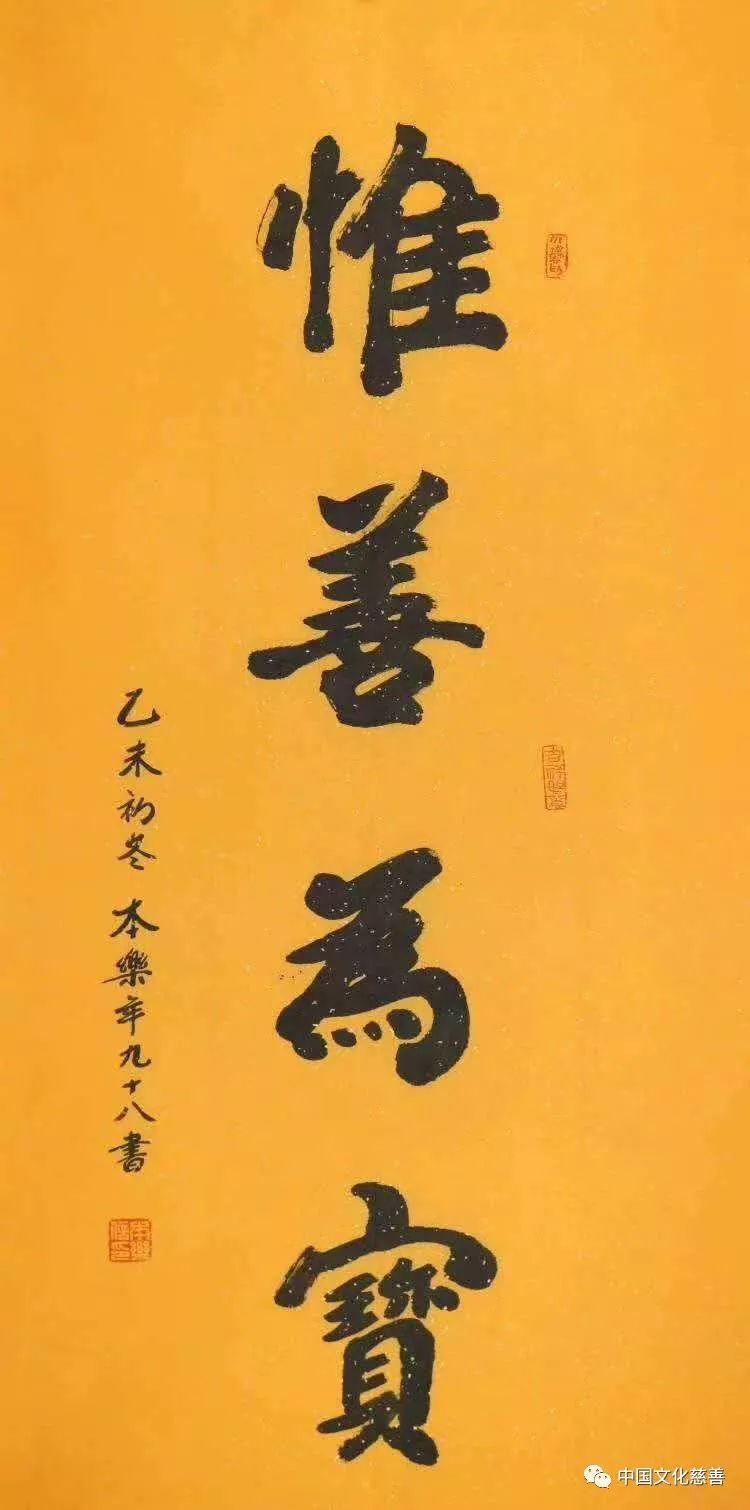 惟善為寶
乙未初冬 本樂年九十八書
中国文化慈善